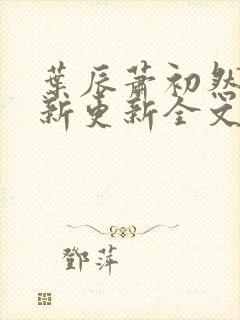 葉辰蕭初然
新更新全文
鄧萍